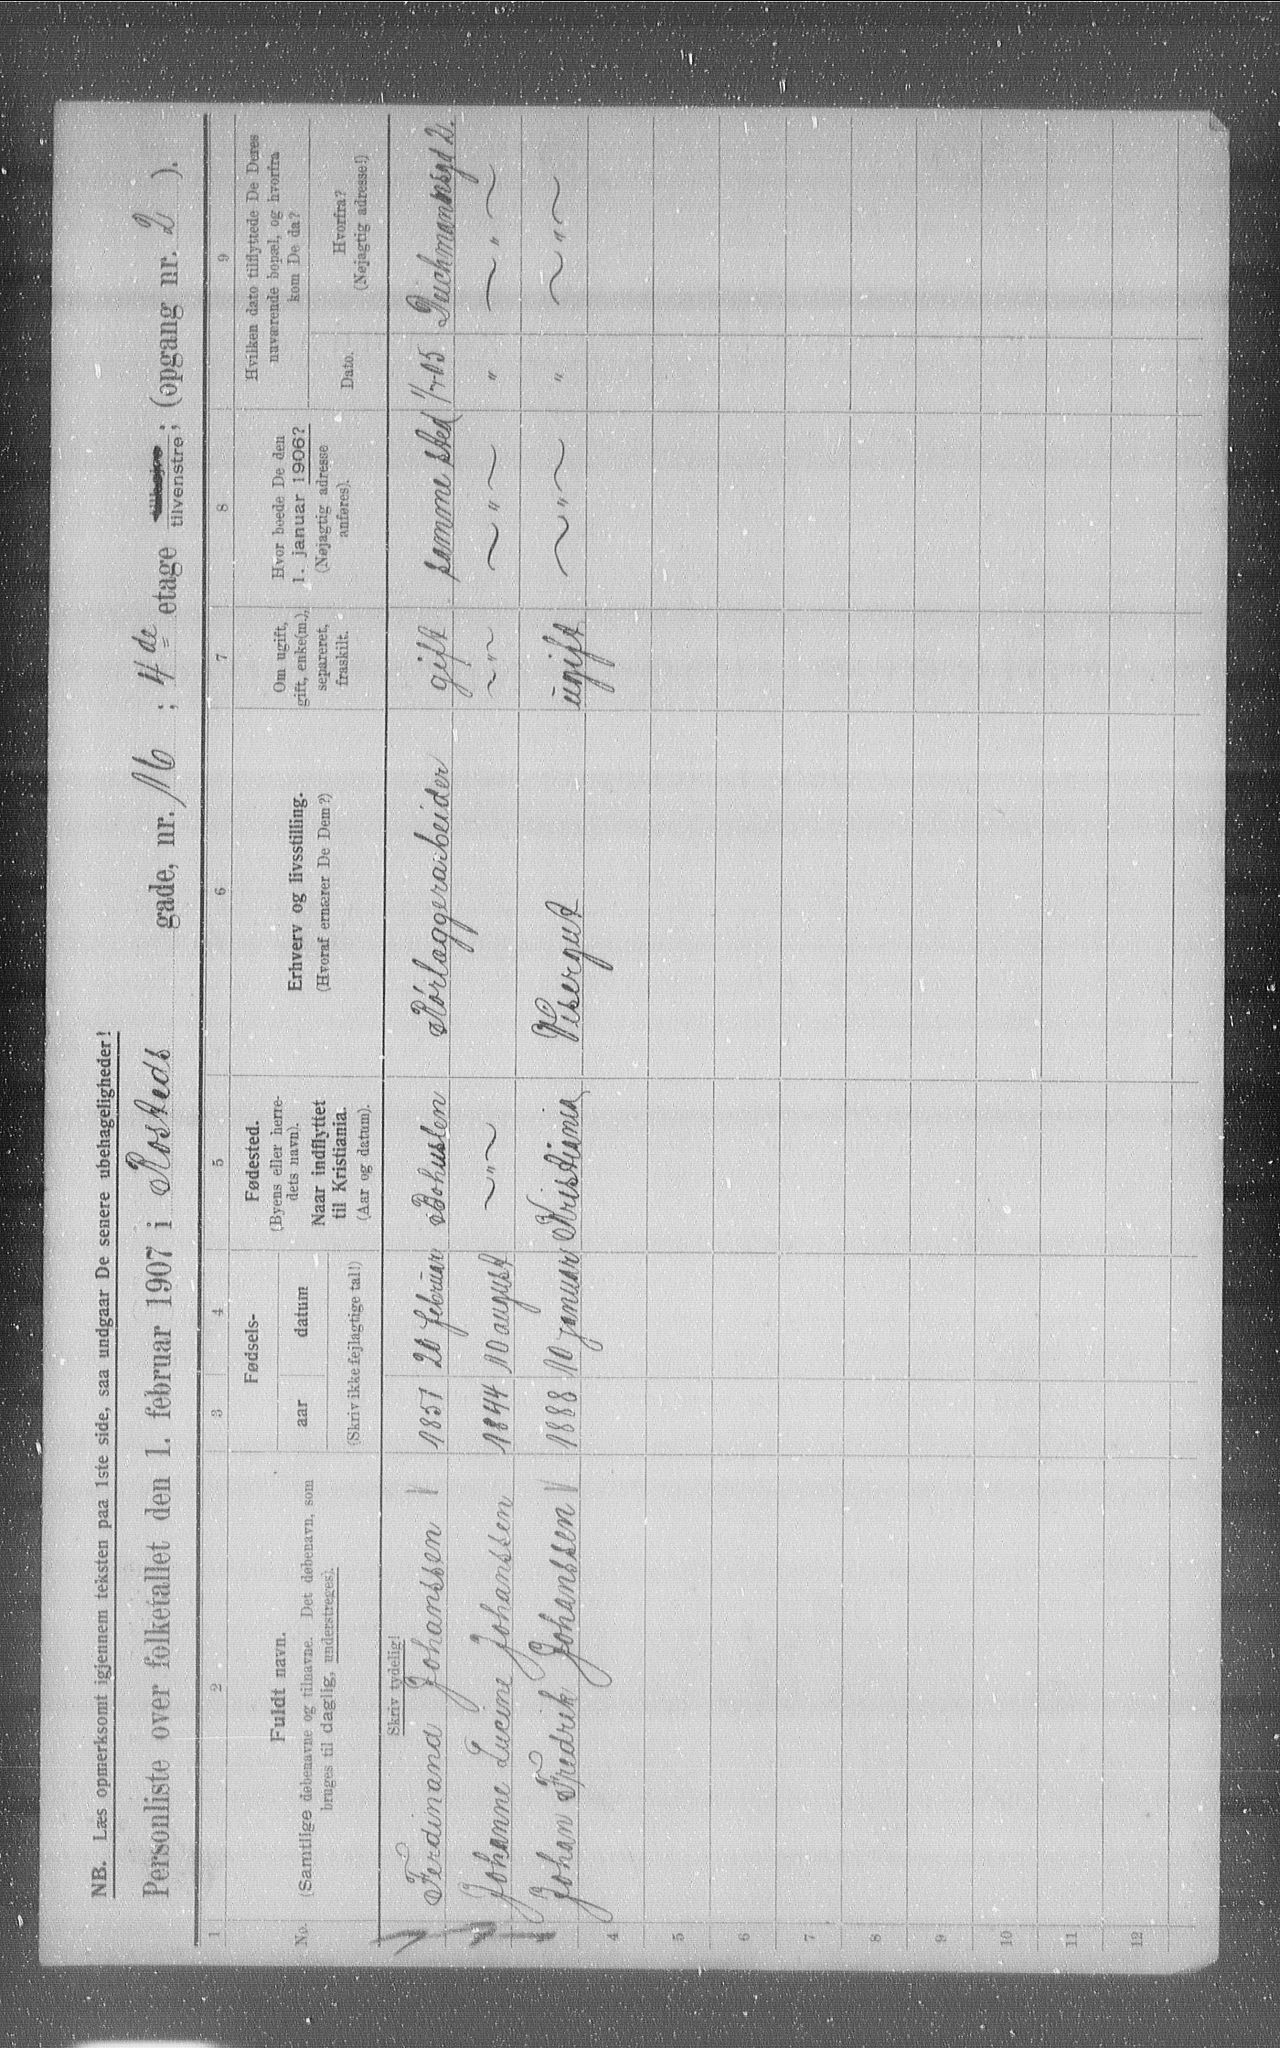 NB. Læs opmerksomt igjennem teksten paa 1ste side, saa undgaar De senere ubehageligheder!
Personliste over folketallet den 1. februar 1907 i Rosteds gade, nr. 16 ; 4de etage tilvenstre; (opgang nr. 2 ).
1 2 3 4 5 6 7 8 9
No.
Fuldt navn.
(Samtlige døbenavne og tilnavne. Det døbenavn, som
bruges til daglig, understreges).
Fødsels-
aar datum
(Skriv ikke fejlagtige tal!)
Fødested.
(Byens eller herre-
dets navn).
Naar indflyttet
til Kristiania.
(Aar og datum).
Erhverv og livsstilling.
(Hvoraf ernærer De Dem?)
Om ugift,
gift, enke(m.),
separeret,
fraskilt.
Hvor boede De den
1. januar 1906?
(Nøjagtig adresse
anføres).
Hvilken dato tilflyttede De Deres
nuværende bopæl, og hvorfra
kom De da?
Dato.
Hvorfra?
(Nøjagtig adresse!)
Skriv tydelig!
Ferdinand Johanssen 1851 20 februar Bohuslen Rørlæggerarbeider gift samme sted Deichmannsgd 2.
Johanne Lucine Johanssen 1844 10 august „ „ „ „ „
Johan Fredrik Johanssen 1888 10 januar Kristiania Visergut ugift „ „ „
4
5
6
7
8
9
10
11
12